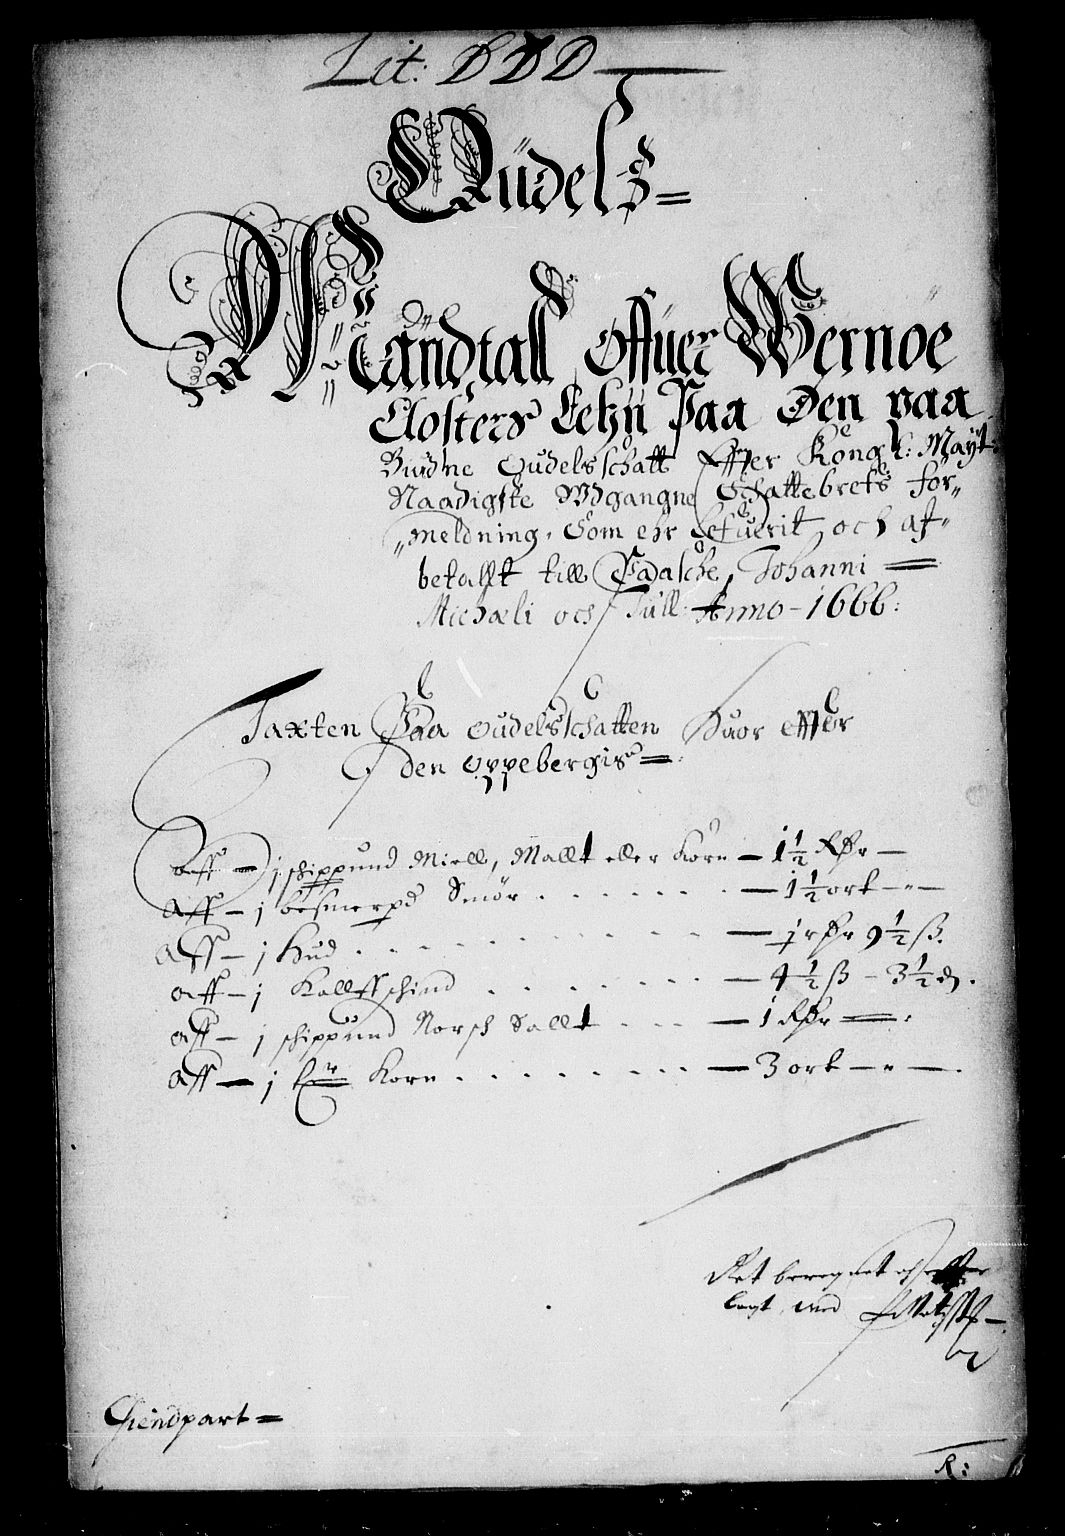 Lit: DDD
Oudels
Mandtall offuer Wernoe
Closters Lehn Paa Den paa
Budne Oudels schatt Effter Kong l: Mayt:
Naadigste Udgangne Schattebrefs for-
meldning, som ehr lefuerit och af-
betallt till Paasche, Johanni
Michaeli och Jull: Anno - 1666:
Taxten Paa oudelsschatten Huor effter
den oppebergis
Aff - j schippund Miell, Mallt eller Korn - 1½ Rdr -
Aff - j besmerpd Smör - 1½ ort -
Aff - j Hud - j rdr 9½ ß.
Aff - j Kallffschind - 4½ ß - 3½ d.
Aff - j schippund Norsch Sallt - 1 Rdr
Aff - j tr Korn - 3 ort -
Ret beregnet och
lagt med
Gienpart
R: